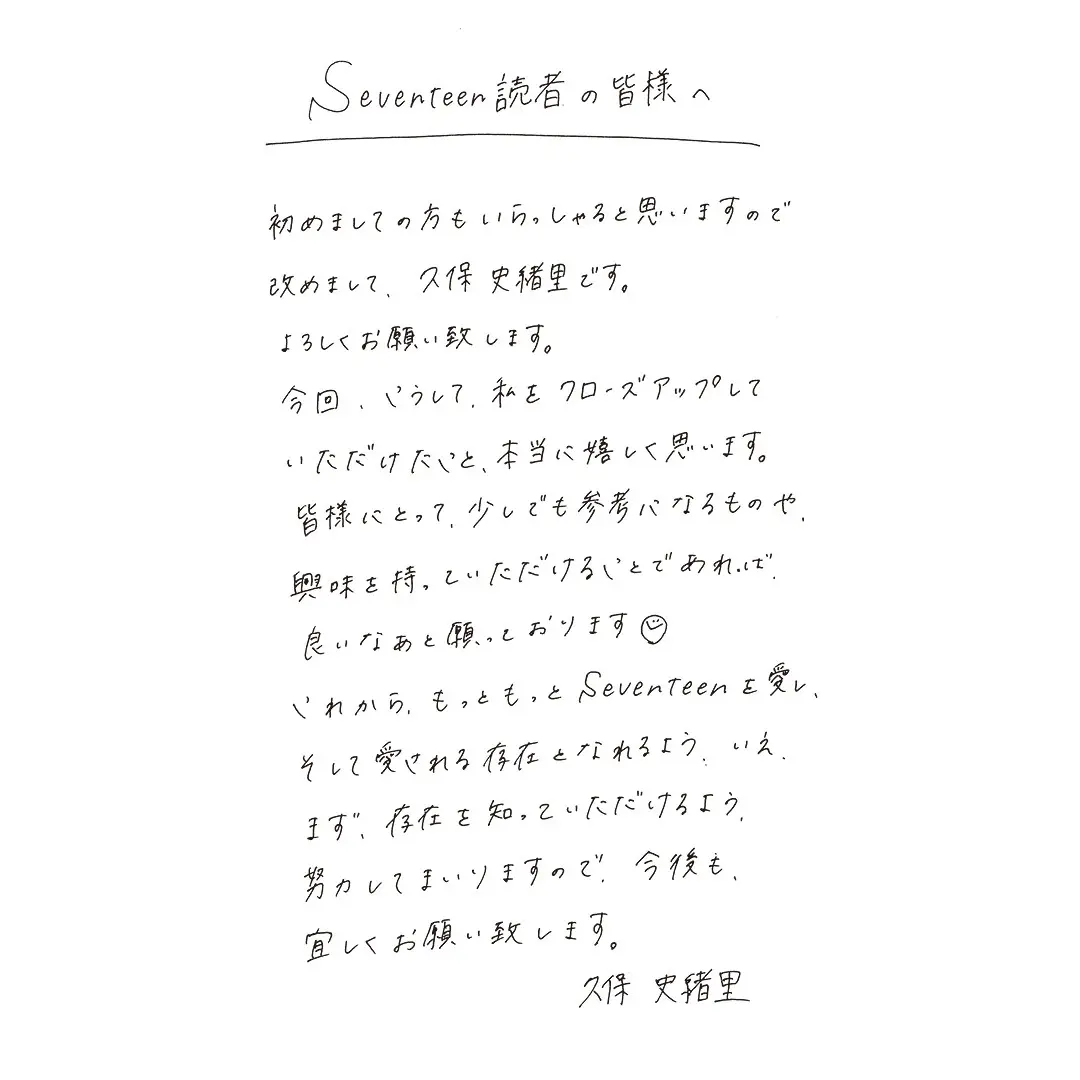 Seventeen読者の皆様へ
初めましての方もいらっしゃると思いますので
改めまして、久保 史緒里です。
よろしくお願い致します。
今回、こうして、私をクローズアップして
いただけたこと、本当に嬉しく思います。
皆様にとって、少しでも参考になるものや、
興味を持っていただけることであれば、
良いなあと願っております☺
これから、もっともっとSeventeenを愛し、
そして愛される存在となれるよう、いえ、
まず、存在を知っていただけるよう、
努力してまいりますので、今後も、
宜しくお願い致します。
久保 史緒里